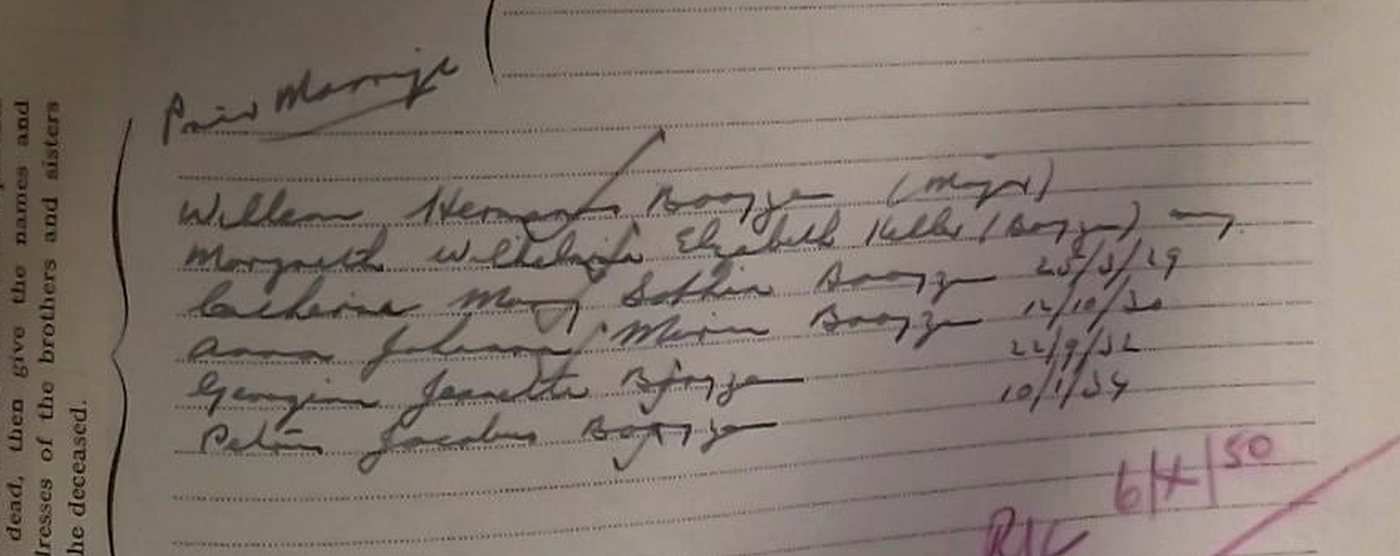 dead, then give the names and
dresses of the brothers and sisters
he deceased.
Prior Marriage
Willem Hermanus Booyzen (Major)
Margareth Wilhelmina Elizabeth Keller (Booyzen)
Catherina Mary Sophia Booyzen 25/3/29
Anna Johanna Maria Booyzen 12/10/30
Georgina Jeanette Booyzen 22/9/32
Petrus Jacobus Booyzen 10/1/34
6/X/50